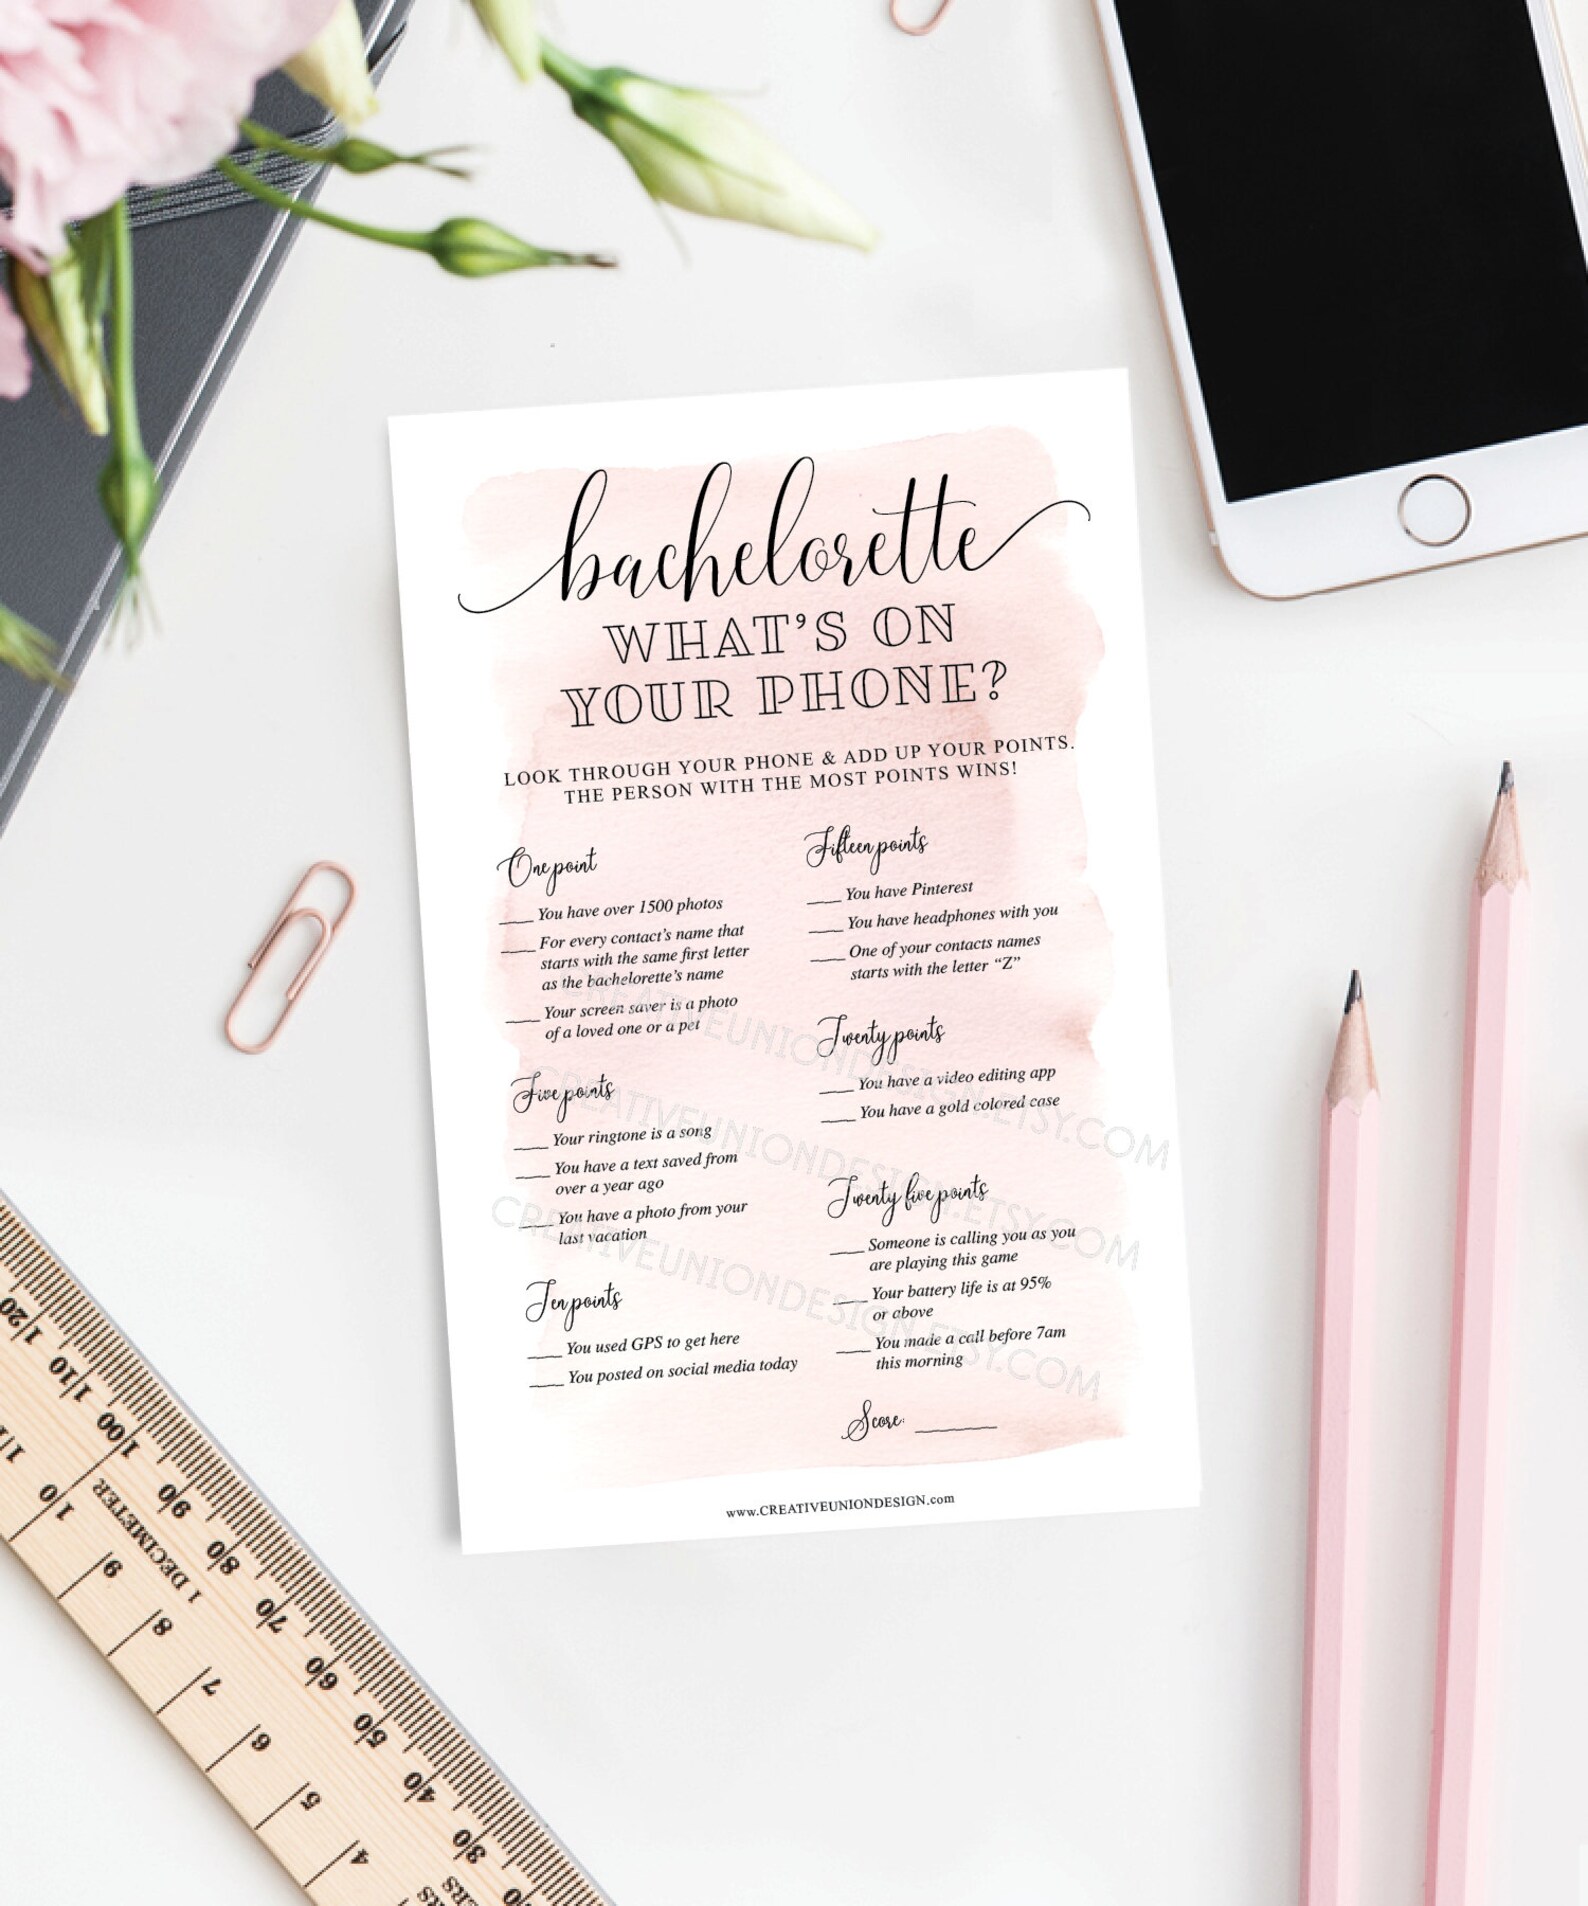 bachelorette
WHAT'S ON
YOUR PHONE?
LOOK THROUGH YOUR PHONE & ADD UP YOUR POINTS.
THE PERSON WITH THE MOST POINTS WINS!
One point
____ You have over 1500 photos
____ For every contact's name that
starts with the same first letter
as the bachelorette's name
____ Your screen saver is a photo
of a loved one or a pet
Five points
____ Your ringtone is a song
____ You have a text saved from
over a year ago
____ You have a photo from your
last vacation
Ten points
____ You used GPS to get here
____ You posted on social media today
Fifteen points
____ You have Pinterest
____ You have headphones with you
____ One of your contacts names
starts with the letter “Z”
Twenty points
____ You have a video editing app
____ You have a gold colored case
Twenty five points
____ Someone is calling you as you
are playing this game
____ Your battery life is at 95%
or above
____ You made a call before 7am
this morning
Score: ________
www.CREATIVEUNIONDESIGN.com
CREATIVEUNIONDESIGN.ETSY.COM
CREATIVEUNIONDESIGN.ETSY.COM
CREATIVEUNIONDESIGN.ETSY.COM
120
110
100
90
80
70
60
50
40
30
1 DECIMETER
11
10
9
8
7
6
5
4